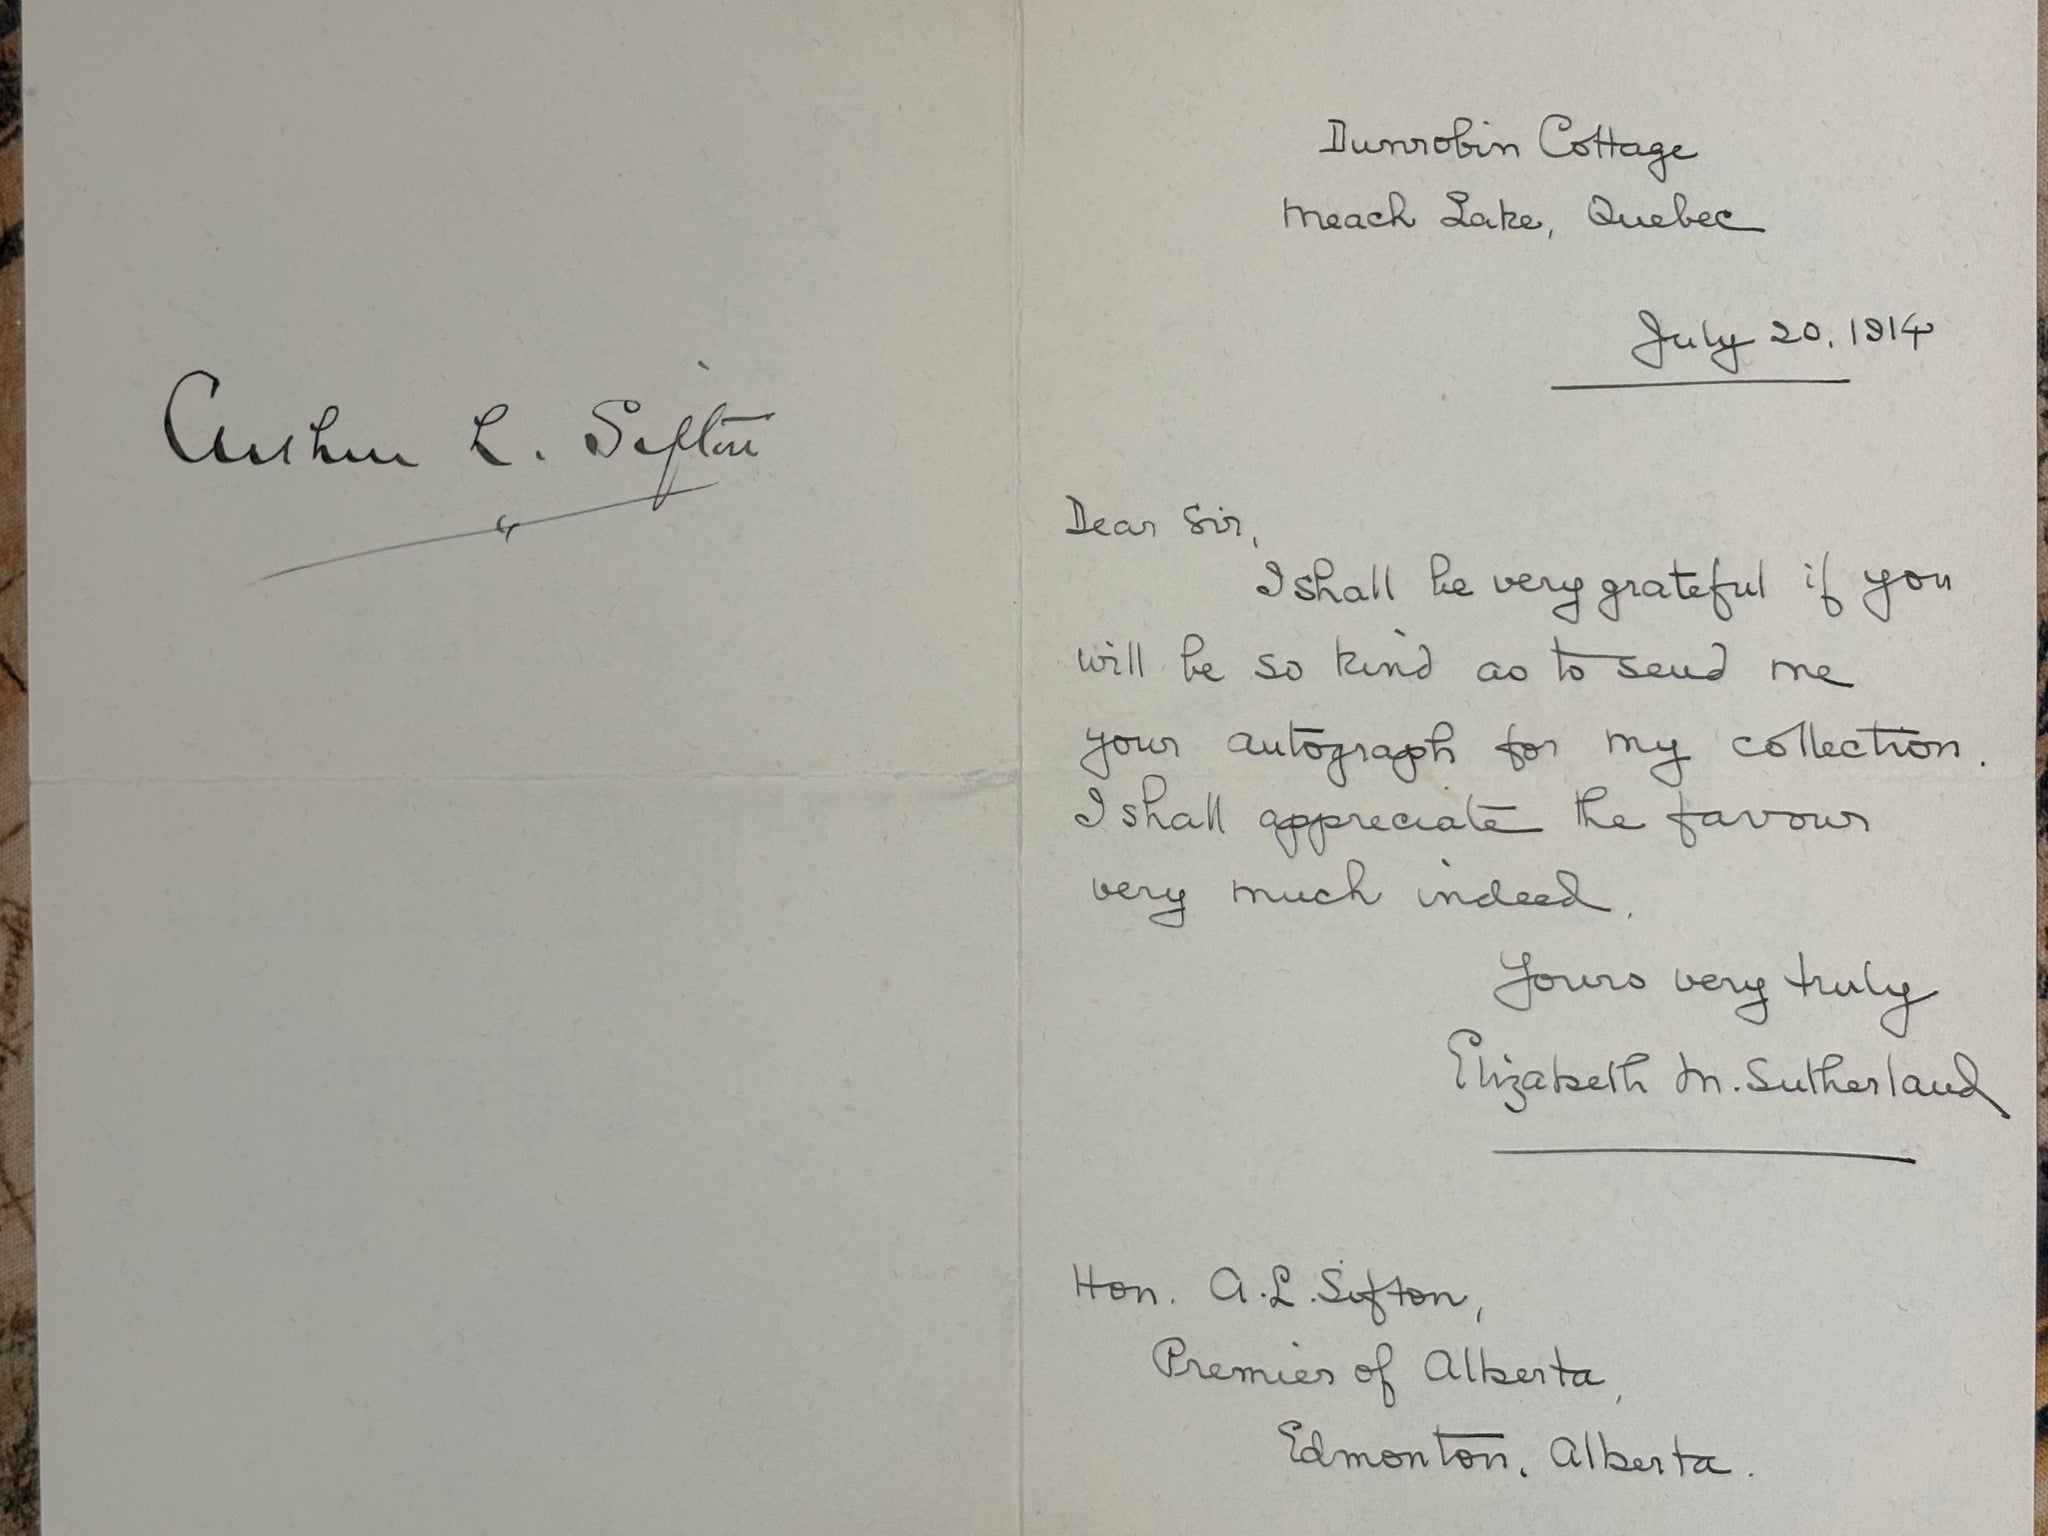 Arthur L. Sifton
Dunrobin Cottage
Meach Lake, Quebec
July 20, 1914
Dear Sir,
I shall be very grateful if you
will be so kind as to send me
your autograph for my collection.
I shall appreciate the favour
very much indeed.
Yours very truly
Elizabeth M. Sutherland
Hon. A. L. Sifton,
Premier of Alberta,
Edmonton, Alberta.